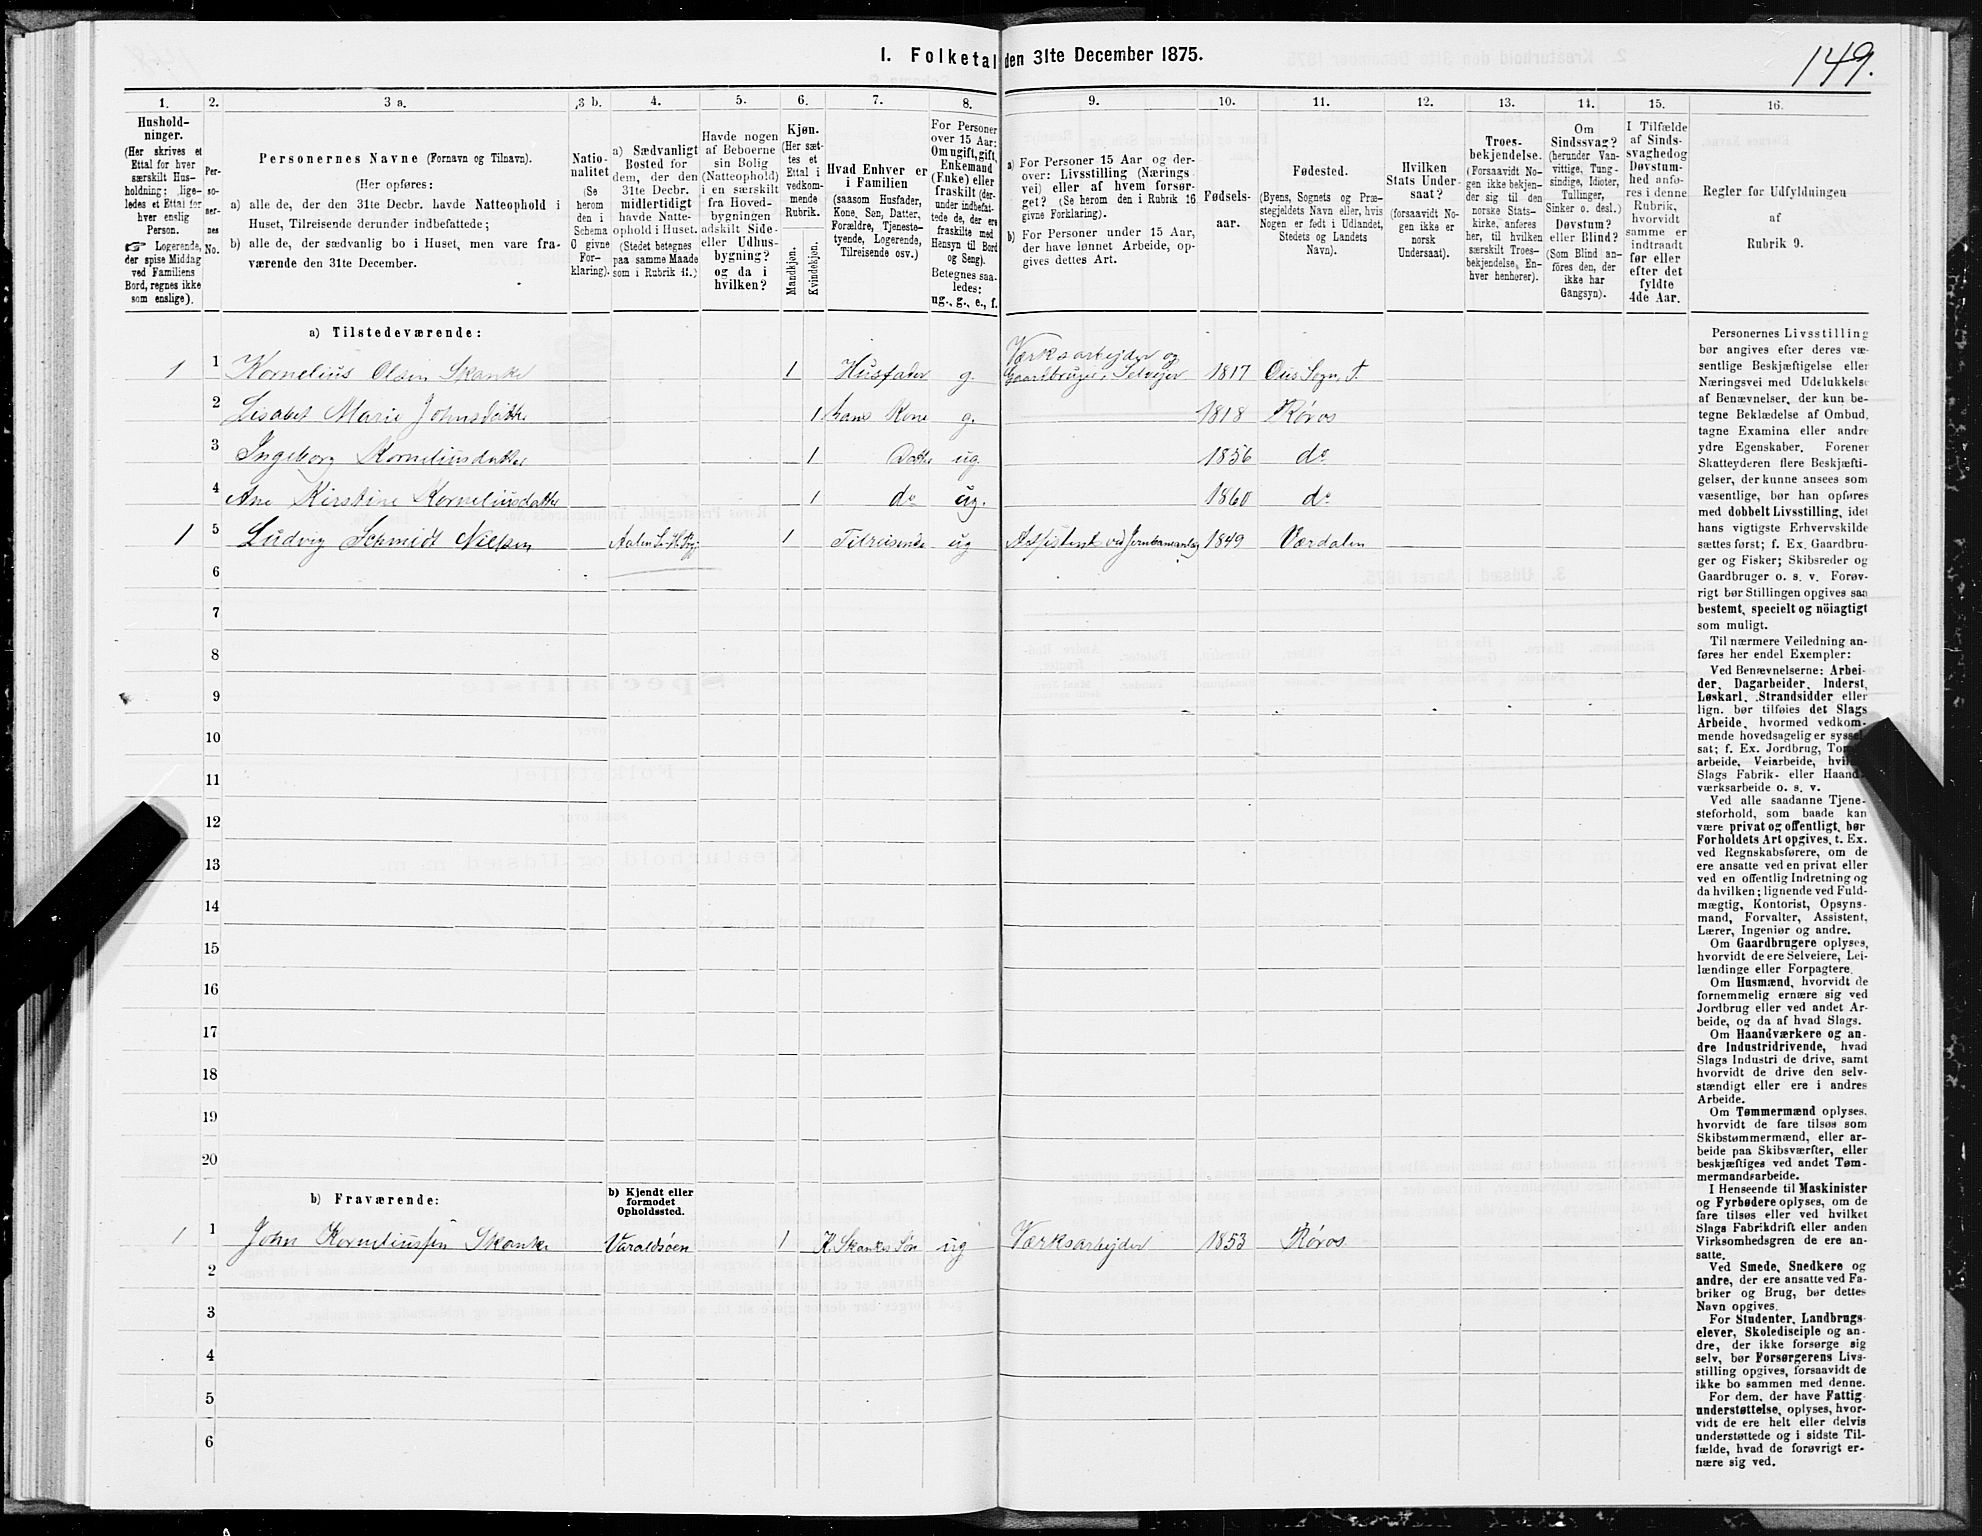 I. Folketal den 31te December 1875.
149.
1.
Hushold-
ninger.
(Her skrives et
Ettal for hver
særskilt Hus-
holdning; lige-
ledes et Ettal for
hver enslig
Person.
☞ Logerende,
der spise Middag
ved Familiens
Bord, regnes ikke
som enslige).
2.
Per-
so-
ner-
nes
No.
3 a.
Personernes Navne (Fornavn og Tilnavn).
(Her opføres:
a) alle de, der den 31te Decbr. havde Natteophold i
Huset, Tilreisende derunder indbefattede;
b) alle de, der sædvanlig bo i Huset, men vare fra-
værende den 31te December.
3 b.
Natio-
nalitet
(Se
herom
den i
Schema
0 givne
For-
klaring).
4.
a) Sædvanligt
Bosted for
dem, der den
31te Decbr.
midlertidigt
havde Natte-
ophold i Huset.
(Stedet betegnes
paa samme Maade
som i Rubrik 11.)
5.
Havde nogen
af Beboerne
sin Bolig
(Natteophold)
i en særskilt
fra Hoved-
bygningen
adskilt Side-
eller Udhus-
bygning?
og da i
hvilken?
6.
Kjøn.
(Her sæt-
tes et
Ettal i
vedkom-
mende
Rubrik.
Mandkjøn.
Kvindekjøn.
7.
Hvad Enhver er
i Familien
(saasom Husfader,
Kone, Søn, Datter,
Forældre, Tjeneste-
tyende, Logerende,
Tilreisende osv.)
8.
For Personer
over 15 Aar:
Om ugift, gift,
Enkemand
(Enke) eller
fraskilt (der-
under indbefat-
tede de, der ere
fraskilte med
Hensyn til Bord
og Seng).
Betegnes saa-
ledes:
ug., g., e., f.
9.
a) For Personer 15 Aar og der-
over: Livsstilling (Nærings
vei) eller af hvem forsør-
get? (Se herom den i Rubrik 16
givne Forklaring).
b) For Personer under 15 Aar,
der have lønnet Arbeide, op-
gives dettes Art.
10.
Fødsels-
aar.
11.
Fødested.
(Byens, Sognets og Præ-
stegjeldets Navn eller, hvis
Nogen er født i Udlandet,
Stedets og Landets
Navn).
12.
Hvilken
Stats Under-
saat?
(forsaavidt No-
gen ikke er
norsk
Undersaat).
13.
Troes-
bekjendelse.
(Forsaavidt No-
gen ikke bekjen-
der sig til den
norske Stats-
kirke, anføres
her, til hvilken
særskilt Troes-
bekjendelse, En-
hver henhører).
14.
Om
Sindssvag?
(herunder Van-
vittige, Tung-
sindige, Idioter,
Tullinger,
Sinker o. desl.)
Døvstum?
eller Blind?
(Som Blind an-
føres den, der
ikke har
Gangsyn).
15.
I Tilfælde
af Sinds-
svaghed og
Døvstum-
hed anfø-
res i denne
Rubrik,
hvorvidt
samme er
indtraadt
før eller
efter det
fyldte
4de Aar.
16.
Regler for Udfyldningen
af
Rubrik 9.
a) Tilstedeværende:
1 1 Kornelius Olsen Skanke 1 Husfader g. Værksarbejder og Gaardbruger, Selveier 1817 Sogn
2 Lisabet Marie Johnsdatter 1 hans Kone g. 1818 Røros
3 Ingeborg Korneliusdatter 1 Datter ug. 1856 do
4 Ane Kirstine Korneliusdatter 1 do ug. 1860 do
1 5 Ludvig Schmidt Nielsen Aalen 1 Tilreisende ug Assistent ved Jernbaneanlæg 1849 Værdalen
6
7
8
9
10
11
12
13
14
15
16
17
18
19
20
b) Fraværende:
b) Kjendt eller
formodet
Opholdssted.
1 1 John Korneliussen Skanke Varaldsøen 1 K. Skankes Søn ug Værksarbejder 1853 Røros
2
3
4
5
6
Personernes Livsstilling
bør angives efter deres væ-
sentlige Beskjæftigelse eller
Næringsvei med Udelukkelse
af Benævnelser, der kun be-
tegne Beklædelse af Ombud,
tagne Examina eller andre
ydre Egenskaber. Forener
Skatteyderen flere Beskjæfti-
gelser, der kunne ansees som
væsentlige, bør han opføres
med dobbelt Livsstilling, idet
hans vigtigste Erhvervskilde
sættes først; f. Ex. Gaardbru-
ger og Fisker; Skibsreder og
Gaardbruger o. s. v. Forøv-
rigt bør Stillingen opgives saa
bestemt, specielt og nöiagtigt
som muligt.
Til nærmere Veiledning an-
føres her endel Exempler:
Ved Benævnelserne: Arbei-
der, Dagarbeider, Inderst,
Løskarl, Strandsidder eller
lign. bør tilføies det Slags
Arbeide, hvormed vedkom-
mende hovedsagelig er syssel-
sat; f. Ex. Jordbrug, Tom
arbeide, Veiarbeide, hvil
Slags Fabrik- eller Haand-
værksarbeide o. s. v.
Ved alle saadanne Tjene-
steforhold, som baade kan
være privat og offentligt, bør
Forholdets Art opgives, t. Ex.
ved Regnskabsførere, om de
ere ansatte ved en privat eller
ved en offentlig Indretning og
da hvilken; lignende ved Fuld-
mægtig, Kontorist, Opsyns-
mand, Forvalter, Assistent,
Lærer, Ingeniør og andre.
Om Gaardbrugere oplyses,
hvorvidt de ere Selveiere, Lei-
lændinge eller Forpagtere.
Om Husmænd, hvorvidt de
fornemmelig ernære sig ved
Jordbrug eller ved andet Ar-
beide, og da af hvad Slags.
Om Haandværkere og an-
dre Industridrivende, hvad
Slags Industri de drive, samt
hvorvidt de drive den selv-
stændigt eller ere i andres
Arbeide.
Om Tømmermænd oplyses,
hvorvidt de fare tilsøs som
Skibstømmermænd, eller ar-
beide paa Skibsværfter, eller
beskjæftiges ved andet Tøm-
mermandsarbeide.
I Henseende til Maskinister
og Fyrbødere oplyses, om de
fare tilsøs eller ved hvilket
Slags Fabrikdrift eller anden
Virksomhedsgren de ere an-
satte.
Ved Smede, Snedkere og
andre, der ere ansatte ved Fa-
briker og Brug, bør dettes
Navn opgives.
For Studenter, Landbrugs-
elever, Skoledisciple og an-
dre, der ikke forsørge sig
selv, bør Forsørgerens Livs-
stilling opgives, forsaavidt de
ikke bo sammen med denne.
For dem, der have Fattig-
understøttelse, oplyses, hvor-
vidt de ere helt eller delvis
understøttede og i sidste Til-
fælde, hvad de forøvrigt er-
nære sig ved.